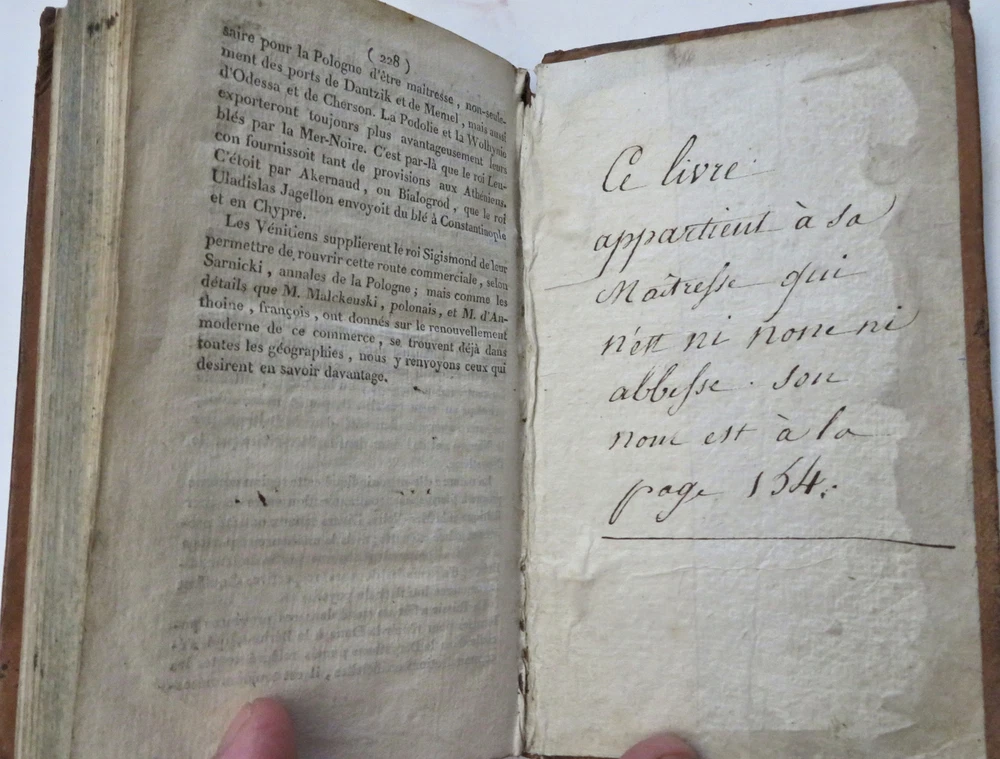 ( 228 )
saire pour la Pologne d'être maîtresse, non-seule-
ment des ports de Dantzik et de Memel, mais aussi
d'Odessa et de Cherson. La Podolie et la Wolhynie
exporteront toujours plus avantageusement leurs
blés par la Mer-Noire. C'est par-là que le roi Leu-
con fournissoit tant de provisions aux Athéniens.
C'étoit par Akernaud, ou Bialogrod, que le roi
Uladislas Jagellon envoyoit du blé à Constantinople
et en Chypre.
Les Vénitiens supplierent le roi Sigismond de leur
permettre de rouvrir cette route commerciale, selon
Sarnicki, annales de la Pologne; mais comme les
détails que M. Malckeuski, polonais, et M. d'An-
thoine, françois, ont donnés sur le renouvellement
moderne de ce commerce, se trouvent déjà dans
toutes les géographies, nous y renvoyons ceux qui
desirent en savoir davantage.
Ce livre
appartient à sa
Maîtresse qui
n'est ni none ni
abbesse. son
nom est à la
page 154.